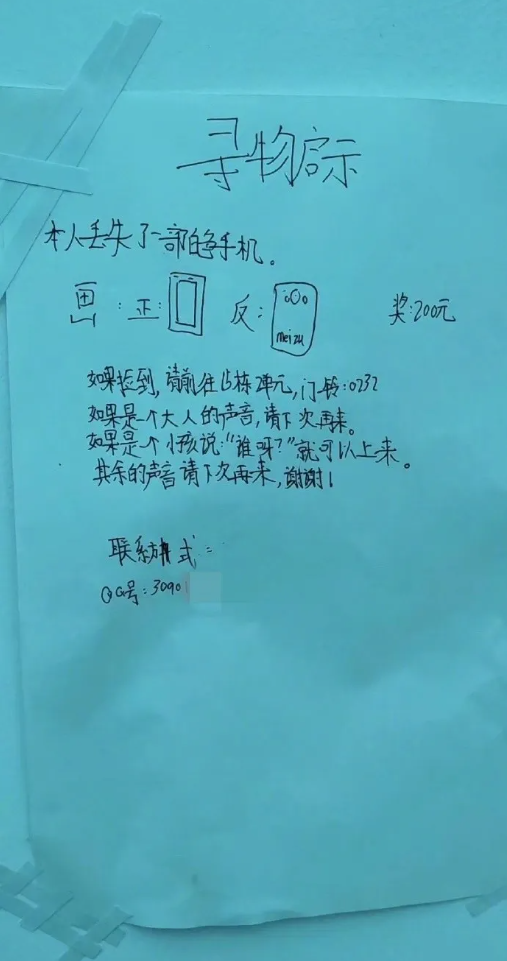 寻物启示
本人丢失了一部白色手机。
画: 正: 反: meizu 奖:200元
如果捡到,请前往15栋2单元,门铃:0232
如果是一个大人的声音,请下次再来。
如果是一个小孩说:“谁呀?”就可以上来。
其余的声音请下次再来,谢谢!
联系方式:
QQ号:3090